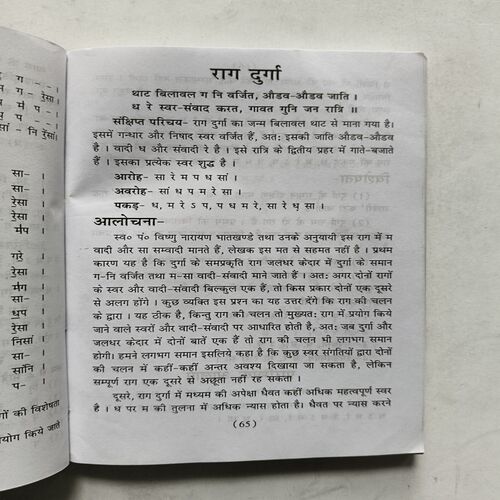 ग - - -
ग - रे॒सा ।
- - रे॒सा ।
म प - ।
सां - नि रे॒सां।
सा - ।
सा- ।
रे॒सा ।
रे॒सा ।
र्मप ।
गरे ।
रे॒सा ।
र्मग ।
सा- ।
धप ।
रे॒सा ।
निसां ।
सा- ।
सांनि ।
प- ।
गों की विशेषता
योग किये जाते
राग दुर्गा
थाट बिलावल ग नि वर्जित, औडव-औडव जाति ।
ध रे स्वर-संवाद करत, गावत गुनि जन रात्रि ॥
संक्षिप्त परिचय- राग दुर्गा का जन्म बिलावल थाट से माना गया है।
इसमें गन्धार और निषाद स्वर वर्जित हैं, अत: इसकी जाति औडव-औडव
है । वादी ध और संवादी रे है । इसे रात्रि के द्वितीय प्रहर में गाते-बजाते
हैं । इसका प्रत्येक स्वर शुद्ध है ।
आरोह- सा रे म प ध सां ।
अवरोह- सां ध प म रे सा ।
पकड़- ध, म रे ऽ प, प ध म रे, सा रे ध़ सा ।
आलोचना-
स्व० पं० विष्णु नारायण भातखण्डे तथा उनके अनुयायी इस राग में म
वादी और सा सम्वादी मानते हैं, लेखक इस मत से सहमत नहीं है । प्रथम
कारण यह है कि दुर्गा के समप्रकृति राग जलधर केदार में दुर्गा के समान
ग-नि वर्जित तथा म-सा वादी-संवादी माने जाते हैं । अत: अगर दोनों रागों
के स्वर और वादी-संवादी बिल्कुल एक हैं, तो किस प्रकार दोनों एक दूसरे
से अलग होंगे । कुछ व्यक्ति इस प्रश्न का यह उत्तर देंगे कि राग की चलन
के द्वारा । यह ठीक है, किन्तु राग की चलन तो मुख्यत: राग में प्रयोग किये
जाने वाले स्वरों और वादी-संवादी पर आधारित होती है, अत: जब दुर्गा और
जलधर केदार में दोनों बातें एक हैं तो राग की चलन भी लगभग समान
होगी। हमने लगभग समान इसलिये कहा है कि कुछ स्वर संगतियों द्वारा दोनों
की चलन में कहीं-कहीं अन्तर अवश्य दिखाया जा सकता है, लेकिन
सम्पूर्ण राग एक दूसरे से अछूता नहीं रह सकता ।
दूसरे, राग दुर्गा में मध्यम की अपेक्षा धैवत कहीं अधिक महत्वपूर्ण स्वर
है । ध पर म की तुलना में अधिक न्यास होता है। धैवत पर न्यास करने
(65)